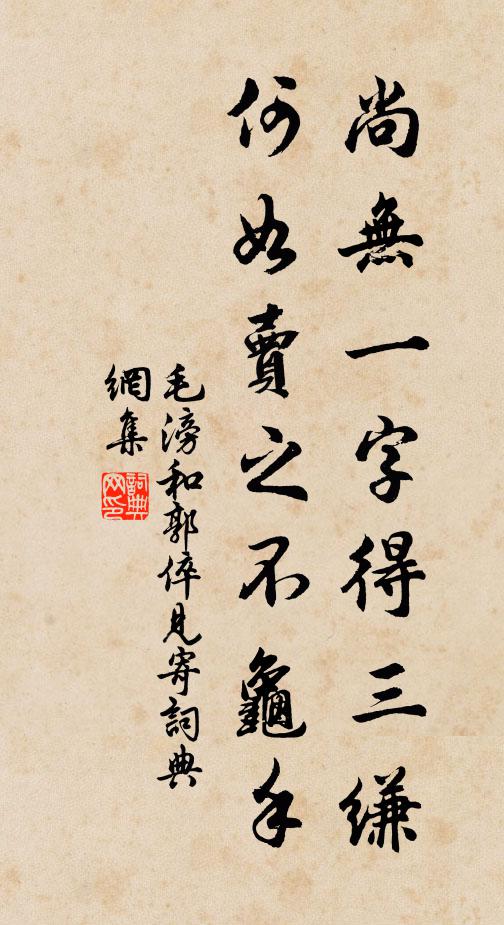 尚無一字得三縑
何如賣之不龜手
毛滂和郭倅見寄詞典
網集
詞典
网印